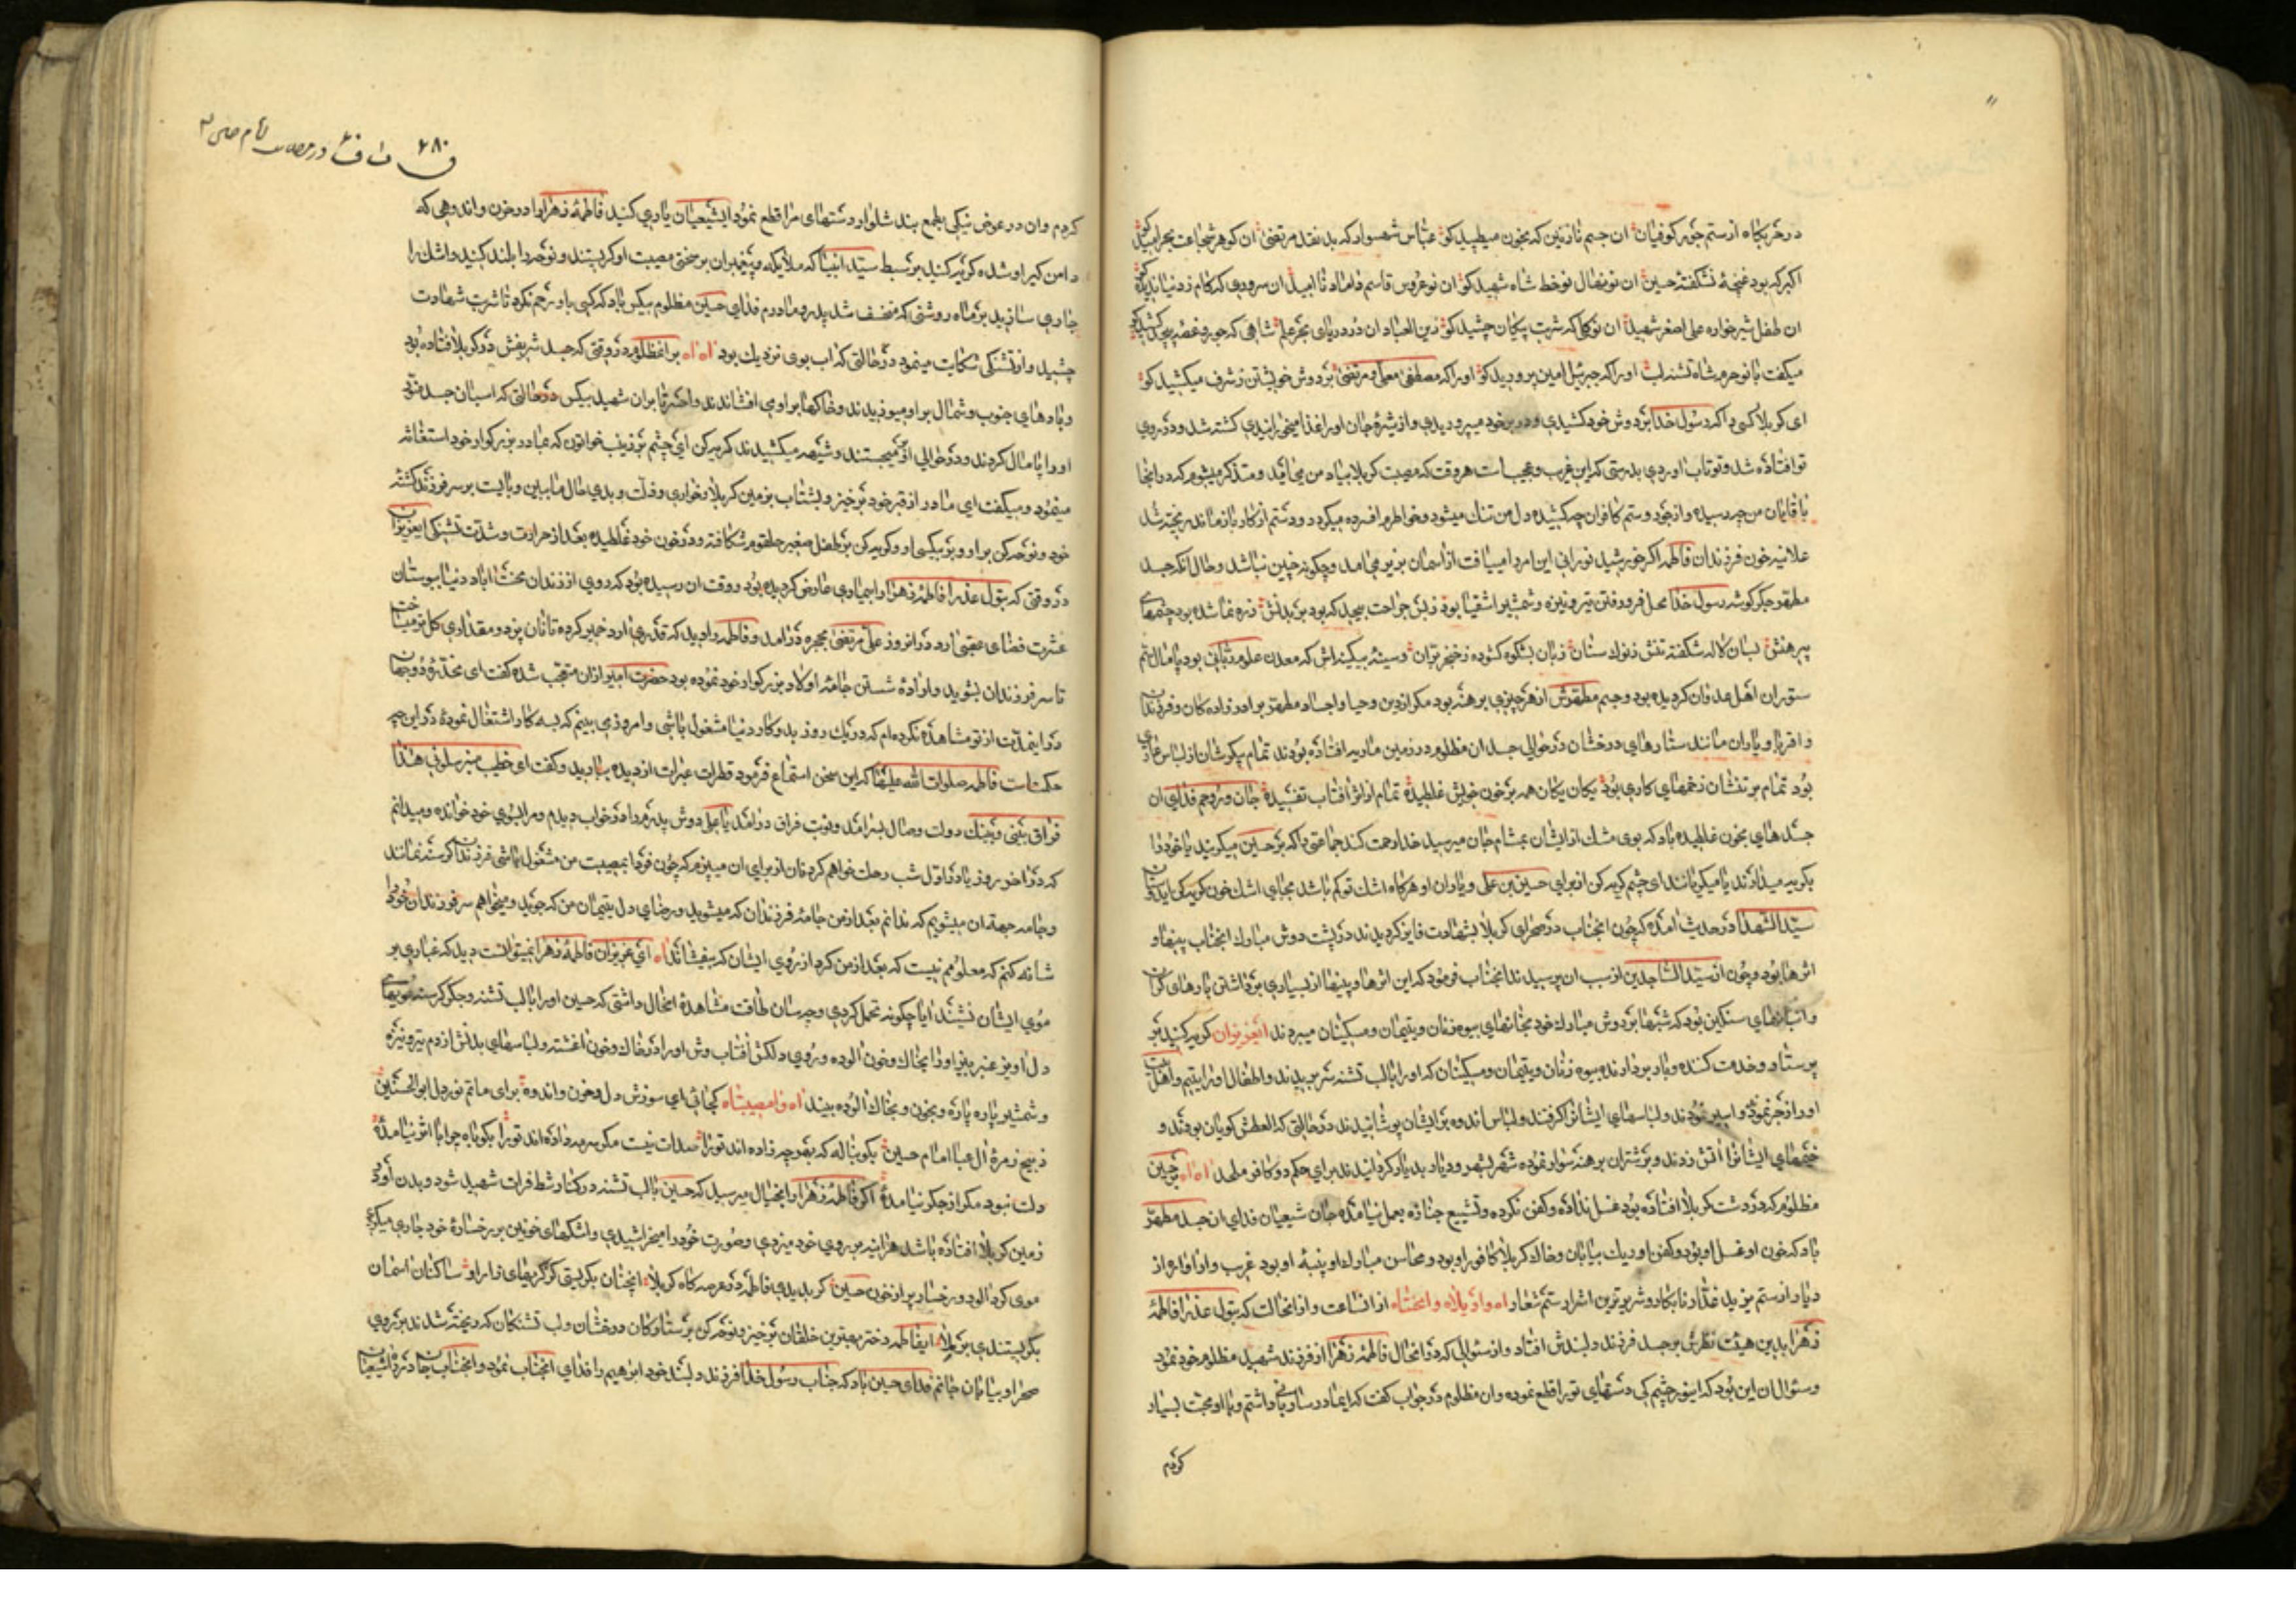 در خربگاه از ستم جور کوفیان آن جسم نازنین که بخون میطپید کو عباس شهسوار که بد نقد مرتضی آن کوهر شجاعت
اکبر که بود غنچهٔ نشکفتهٔ حسین آن نونهال نوخط شاه شهید کو آن نوعروس قاسم داماد نا امید آن سروری که کام ز دنیا ندیده کو
ان طفل شیرخواره علی اصغر شهید ان که شربت پیکان چشید کو زین العباد ان در دریای بحر علم شاهی که جور و غصه
میگفت با نوحرم شاه تشنه لب اورا که جبرئیل امین پرورید کو اورا که مصطفی معلی و مرتضی بر دوش خویشتن ز شرف میکشید کو
ای کربلا کسی را که رسول خدا بر دوش خود کشیدی و در بر خود میپروریدی و از شیرهٔ جان اورا غذا میخورانیدی کشته شد و در روی
تو افتاده شد و تو تاب اوردی بدرستی که این غریب و عجیب است هر وقت که مصیبت کربلا بیاد من می آید و متذکر میشوم که در انجا
با قایان من چه رسیده و از جور و ستم کافران چه کشیده دل من تنک میشود و خواطرم افسرده میکردد و دستم از کار باز ماند ریخته شد
علانیه خون فرزندان فاطمه اگر خورشید نورانی این امر را میافت از اسمان بزیر می امد و چکونه چنین نباشد و حال انکه جسد
مطهر جکر کوشه رسول خدا محل فرو رفتن تیر و نیزه و شمشیر اشقیا بود ز بس جراحت بیحد که بود بر بدنش زره نما شده بود
پیرهنش بسان لاله شکفته تنش ز نوک سنان زبان بشکوه کشوده ز خنجر بران و سینهٔ بیکینه اش که معدن علوم ربانی بود پامال سم
ستوران اهل عدوان کردیده بود و جسم مطهرش از هر چیزی برهنه بود مکر از دین و حیا و اجساد مطهر برادرزاده کان و فرزندان
و اقربا و یاوران مانند ستارهای درخشان در حوالی جسد ان مظلوم در زمین ماریه افتاده بودند تمام پیکرشان از لباس عاری
بود تمام بر تنشان زخمهای کاری بود یکان یکان همه بر خون خویش غلطیده تمام از اثر آفتاب تفسیده جان و روحم فدای ان
جسدهای بخون غلطیده باد که بوی مشک از ایشان بمشام جان میرسید خدا رحمت کند جماعتی را که بر حسین میکریند یا خود را
بکریه میدارند یا میکریانند ای چشم کریه کن از برای حسین بن علی و یاران او هر کاه اشک تو کم باشد بجای اشک خون کریه کن
سید الشهدا در حدیث آمده که چون انجناب در صحرای کربلا بشهادت فایز کردیدند در پشت دوش مبارک انجناب پینها و
اثرها بود و چون از سید الساجدین از سبب ان پرسیدند انجناب فرمود که این اثرها و پینها از بسیاری برداشتن بارهای کران
و انبانهای سنکین بود که شبها بر دوش مبارک خود بخانهای بیوه زنان و یتیمان و مسکینان میبردند ایعزیزان کریه کنید بر
پرستار و خدمت کننده و بار بردارنده بیوه زنان و یتیمان و مسکینان که اورا با لب تشنه سر بریدند و اطفال اورا یتیم و اهل
اورا زجر نمودند و اسیر نمودند و لباسهای ایشانرا کرفتند و لباس اندوه بر ایشان پوشانیدند در حالتی که العطش کویان بودند و
خیمهای ایشانرا آتش زدند و بر شتران برهنه سوار نموده شهر بشهر و دیار بدیار کردانیدند برای حکم دو کافر ملحد اه اه بر حسین
مظلوم که در دشت کربلا افتاده بود غسل نداده و کفن نکرده و تشییع جنازه بعمل نیامده جان شیعیان فدای ان جسد مطهر
باد که خون او غسل او بود و کفن او ریک بیابان و خاک کربلا کافور او بود و محاسن مبارک او پنبهٔ او بود غریب و اواره از
دیار از ستم یزید غدار نابکار و شریرترین اشرار ستم شعار اه واویلاه وامحنتاه از انساعت و از انحالت که بتول عذرا فاطمهٔ
زهرا بدین هیئت نظرش بر جسد فرزند دلبندش افتاد و از سئوالی که در انحال فاطمهٔ زهرا از فرزند شهید مظلوم خود نمود
و سئوال ان این بود که اینور چشم کی دستهای ترا قطع نموده و ان مظلوم در جواب کفت که ایمادر ساربانی داشتم و با او محبت بسیار
کردم
۲۸۰
کردم و ان در عوض نیکی بطمع بند شلوار دستهای مرا قطع نمود ایشیعیان یاری کنید فاطمهٔ زهرا را در حزن و اندوهی که
دامن کیر او شده کریه کنید بر سبط سید انبیا که ملائیکه و پیغمبران بر سختی مصیبت او کریستند و نوحه را بلند کنید و اشک را
جاری سازید بر ماه روشنی که منخسف شد پدر و مادرم فدای حسین مظلوم بیکس باد که کسی باو رحم نکرد تا شربت شهادت
چشید و از تشنکی شکایت مینمود در حالتی که اب بوی نزدیک بود اه اه بر انمظلوم در وقتی که جسد شریفش در کربلا افتاده بود
و بادهای جنوب و شمال بر او میوزیدند و خاکها بر او می افشاندند واحسرتا بر ان شهید بیکس در حالتی که اسبان جسد منور
اورا پامال کردند و در حوالی او میجستند و شیهه میکشیدند کریه کن ای چشم بر زینب خواتون که بمادر بزرکوار خود استغاثه
مینمود و میکفت ای مادر از قبر خود برخیز و بشتاب بزمین کربلا و خواری و ذلت و بدی حال ما ببین و باایست بر سر فرزند کشته
خود و نوحه کن بر او و بر بیکسی او و کریه کن بر طفل صغیر حلقوم شکافته و در خون خود غلطیده بعد از حرارت و شدت تشنکی ایعزیزان
در وقتی که بتول عذرا فاطمهٔ زهرا را بیماری عارض کردیده بود و وقت ان رسیده بود که روی از زندان محنت اباد دنیا ببوستان
عشرت فضای عقبی ارد در انروز علی مرتضی بحجره در امد و فاطمه را دید که قدری ارد خمیر کرده تا نان پزد و مقداری کل تر میساخت
تا سر فرزندان بشوید و ارادهٔ شستن جامهٔ اولاد بزرکوار خود نموده بود حضرت امیر ازان متعجب شده کفت ای مخدرهٔ دو جهان
در اینمدت از تو مشاهده نکرده ام که در یک روز بدو کار دنیا مشغول باشی و امروز می بینم که بسه کار اشتغال نمودهٔ در این چه
حکمت است فاطمه صلوات الله علیها که این سخن استماع فرمود قطرات عبرات از دیده بارید و کفت ای خطیب منبر سلونی هذا
فراق بینی و بینک دولت وصال بسر امد و نوبت فراق در امد یا علی دوش پدرم را در خواب دیدم و مرا بسوی خود خوانده و میدانم
که در اخر روز یا در اول شب رحلت خواهم کرد نان از برای ان میپزم که چون فردا بمصیبت من مشغول باشی فرزندان کرسنه نمانند
و جامه جهة ان میشویم که ندانم بعد از من جامهٔ فرزندان که میشوید و رضای دل یتیمان من که جوید و میخواهم سر فرزندان خود را
شانه کنم که معلومم نیست که بعد از من کرد از روی ایشان که بیفشاند اه ای عزیزان فاطمهٔ زهرا نمیتوانست دید که غباری بر
موی ایشان نشیند ایا چکونه تحمل کردی و چه سان طاقت مشاهدهٔ انحال داشتی که حسین اورا با لب تشنه و جکر کرسنه مویهای
دل اویز عنبر بیز اورا بخاک و خون الوده و روی دلکش آفتاب وش اورا در خاک و خون اغشته و لباسهای بدنش از دم تیر و نیزه
و شمشیر پاره پاره و بخون و بخاک الوده بیند اه وامصیبتاه کجائی ای سوزش دل و حزن و اندوه برای ماتم نور دل ابو الحسنین
ذبیح زمرهٔ آل عبا امام حسین بکو بناله که بهر چه زاده اند ترا صدات نیست مکر سرمه داده اند ترا بکو باه چرا با اثر نیامدهٔ
دلت نبود مکر از جکر نیامدهٔ اکر فاطمهٔ زهرا را بخیال میرسید که حسین با لب تشنه در کنار شط فرات شهید شود و بدن او در
زمین کربلا افتاده باشد هر اینه بر روی خود میزدی و صورت خود را میخراشیدی و اشکهای خونین بر رخسارهٔ خود جاری میکردی
موی کرد الود و رخسار پر از خون حسین کر بدیدی فاطمه در عرصه کاه کربلا انچنان بکریستی کز کریهای زار او ساکنان اسمان
بکریستندی بر ملا ایفاطمه دختر بهترین خلقان برخیز و نوحه کن بر ستارکان درخشان و لب تشنکان که ریخته شدند بر روی
صحرا و بیابان جانم فدای حسین باد که جناب رسول خدا فرزند دلبند خود ابراهیم را فدای انجناب نمود و انجناب